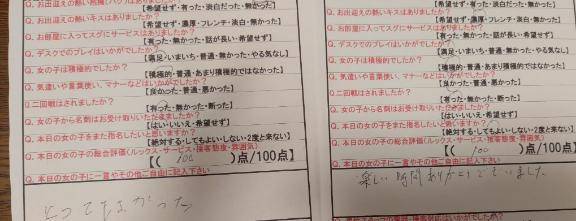 Q. お出迎えの熱い抱擁(ハグ)はありましたか?
【希望せず・有った・淡白だった・無かった】
Q. お出迎えの熱いキスはありましたか?
【希望せず・濃厚・フレンチ・淡白・無かった】
Q. お部屋に入ってスグにサービスはありましたか?
【有った・無かった・話が長い・希望せず】
Q. デスクでのプレイはいかがでしたか?
【満足・いまいち・普通・無かった・やる気なし】
Q. 女の子は積極的でしたか?
【積極的・普通・あまり積極的ではなかった】
Q. 気遣いや言葉使い、マナーなどはいかがでしたか?
【良かった・普通・悪かった】
Q. 二回戦はされましたか?
【有った・無かった・断った】
Q. 女の子から名刺はお受け取りいただきましたか?
【はい・いいえ・希望せず】
Q. 本日の女の子をまた指名したいと思いますか?
【絶対する・してもよい・しない・2度と来ない】
Q. 本日の女の子の総合評価(ルックス・サービス・接客態度・雰囲気)
【( 100 )点/100点】
Q. 本日の女の子に一言やその他ご自由に記入下さい
とってもよかった
Q. お出迎えの熱いキスはありましたか?
【希望せず・濃厚・フレンチ・淡白・無かった】
Q. お部屋に入ってスグにサービスはありましたか?
【有った・無かった・話が長い・希望せず】
Q. デスクでのプレイはいかがでしたか?
【満足・いまいち・普通・無かった・やる気なし】
Q. 女の子は積極的でしたか?
【積極的・普通・あまり積極的ではなかった】
Q. 気遣いや言葉使い、マナーなどはいかがでしたか?
【良かった・普通・悪かった】
Q. 二回戦はされましたか?
【有った・無かった・断った】
Q. 女の子から名刺はお受け取りいただきましたか?
【はい・いいえ・希望せず】
Q. 本日の女の子をまた指名したいと思いますか?
【絶対する・してもよい・しない・2度と来ない】
Q. 本日の女の子の総合評価(ルックス・サービス・接客態度・雰囲気)
【( 100 )点/100点】
Q. 本日の女の子に一言やその他ご自由に記入下さい
楽しい時間ありがとうございました